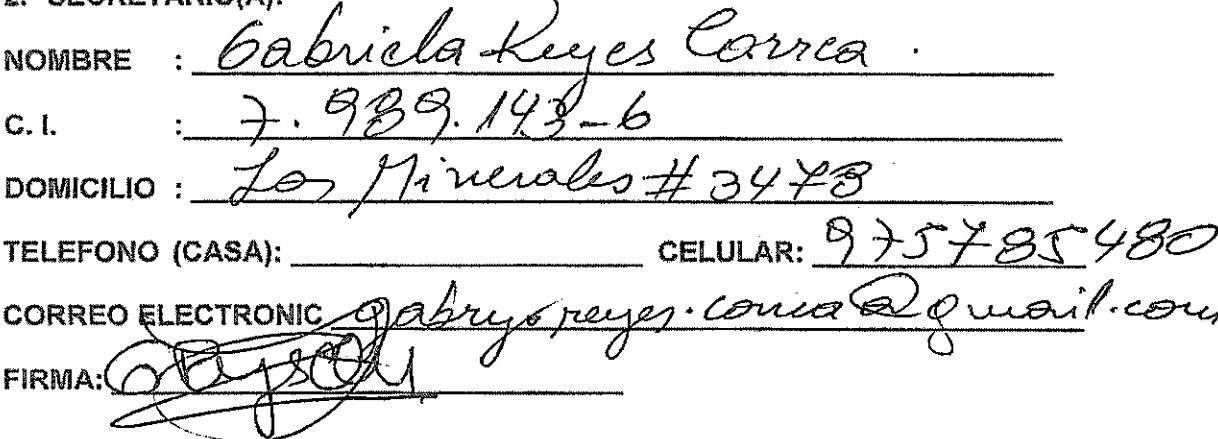 2. SECRETARIO(A):
NOMBRE : Gabriela Reyes Correa.
C. I. : 7.989.143-6
DOMICILIO : Los Minerales # 3473
TELEFONO (CASA): CELULAR: 975785480
CORREO ELECTRONIC
FIRMA: